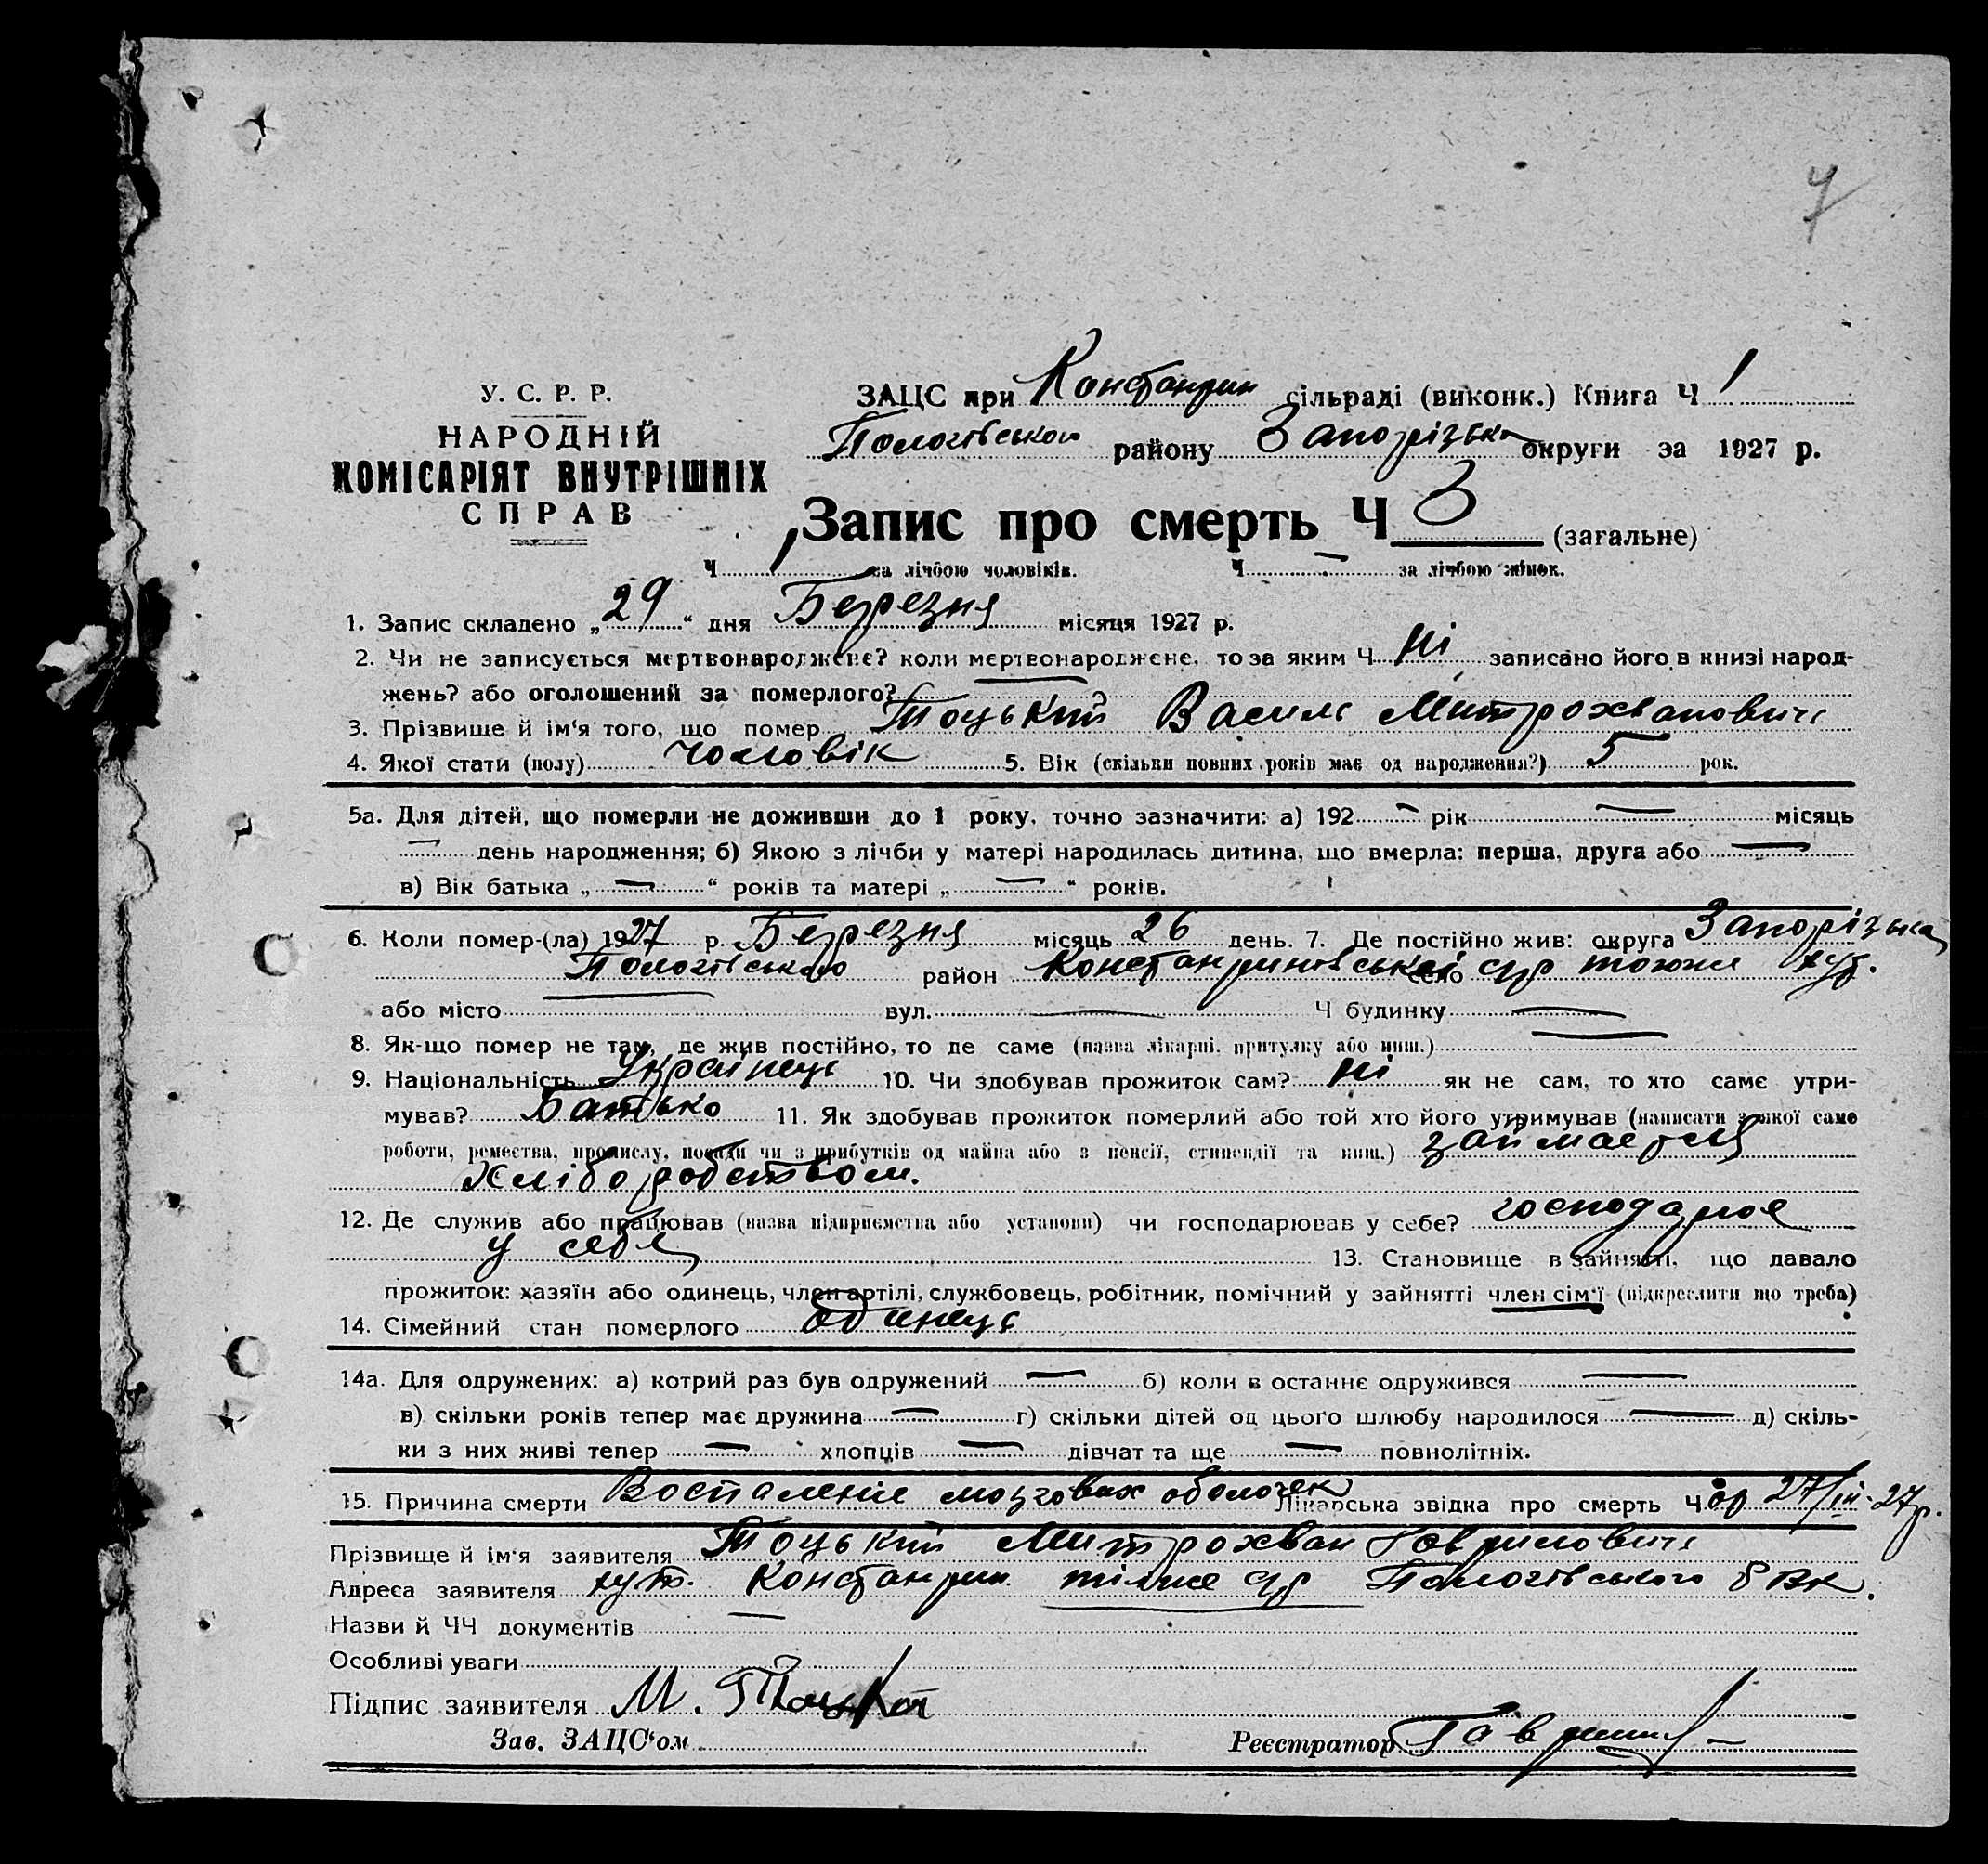 7
У. С. Р. Р.
НАРОДНІЙ
КОМІСАРІЯТ ВНУТРІШНІХ
СПРАВ
ЗАЦС при Констанрин сільраді (виконк.) Книга Ч 1
Пологівського району Запорізька округи за 1927 р.
Запис про смерть Ч 3 (загальне)
Ч 1 за лічбою чоловіків. Ч — за лічбою жінок.
1. Запис складено „29“ дня Березня місяця 1927 р.
2. Чи не записується мертвонароджене? коли мертвонароджене, то за яким Ч ні записано його в книзі народ-
жень? або оголошений за померлого? —
3. Прізвище й ім'я того, що помер Тоцький Василь Митрохванович
4. Якої стати (полу) чоловік 5. Вік (скільки повних років має од народження?) 5 рок.
5а. Для дітей, що померли не доживши до 1 року, точно зазначити: а) 192 — рік — місяць
— день народження; б) Якою з лічби у матері народилась дитина, що вмерла: перша, друга або —
в) Вік батька „ — “ років та матері „ — “ років.
6. Коли помер-(ла) 1927 р. Березня місяць 26 день. 7. Де постійно жив: округа Запорізька
Пологівського район село хут.
або місто — вул. — Ч будинку —
8. Як-що помер не там, де жив постійно, то де саме (назва лікарні, притулку або инш.) —
9. Національність Українець 10. Чи здобував прожиток сам? ні як не сам, то хто саме утри-
мував? Батько 11. Як здобував прожиток померлий або той хто його утримував (написати з якої саме
роботи, ремества, промислу, посади чи з прибутків од майна або з пенсії, стипендії та инш.) займаеться
Хліборобством.
12. Де служив або працював (назва підприємства або установи) чи господарював у себе? господарює
у себе 13. Становище в зайнятті, що давало
прожиток: хазяїн або одинець, член артілі, службовець, робітник, помічний у зайнятті член сім'ї (підкреслити що треба)
14. Сімейний стан померлого одинець
14а. Для одружених: а) котрий раз був одружений — б) коли в останнє одружився —
в) скільки років тепер має дружина — г) скільки дітей од цього шлюбу народилося — д) скіль-
ки з них живі тепер — хлопців — дівчат та ще — повнолітніх.
15. Причина смерти Воспаленіе мозгових оболочек Лікарська звідка про смерть Ч 27/III-27р.
Прізвище й ім'я заявителя Тоцький Митрохван Гаврилович
Адреса заявителя хут. Пологівського РВК.
Назви й ЧЧ документів —
Особливі уваги
Підпис заявителя М. Тоцкий
Зав. ЗАЦС'ом Реєстратор